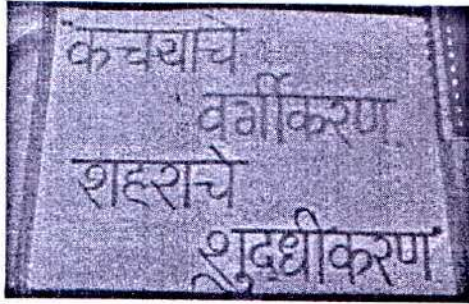 कचयाचे
वर्गीकरण
शहराचे
शुद्धीकरण